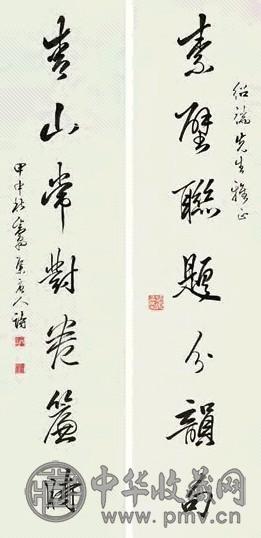 紹瑞先生雅正
素壁聯題分韻句
青山常對卷簾時
甲申秋集唐人詩
中华收藏网
www.pmv.cn